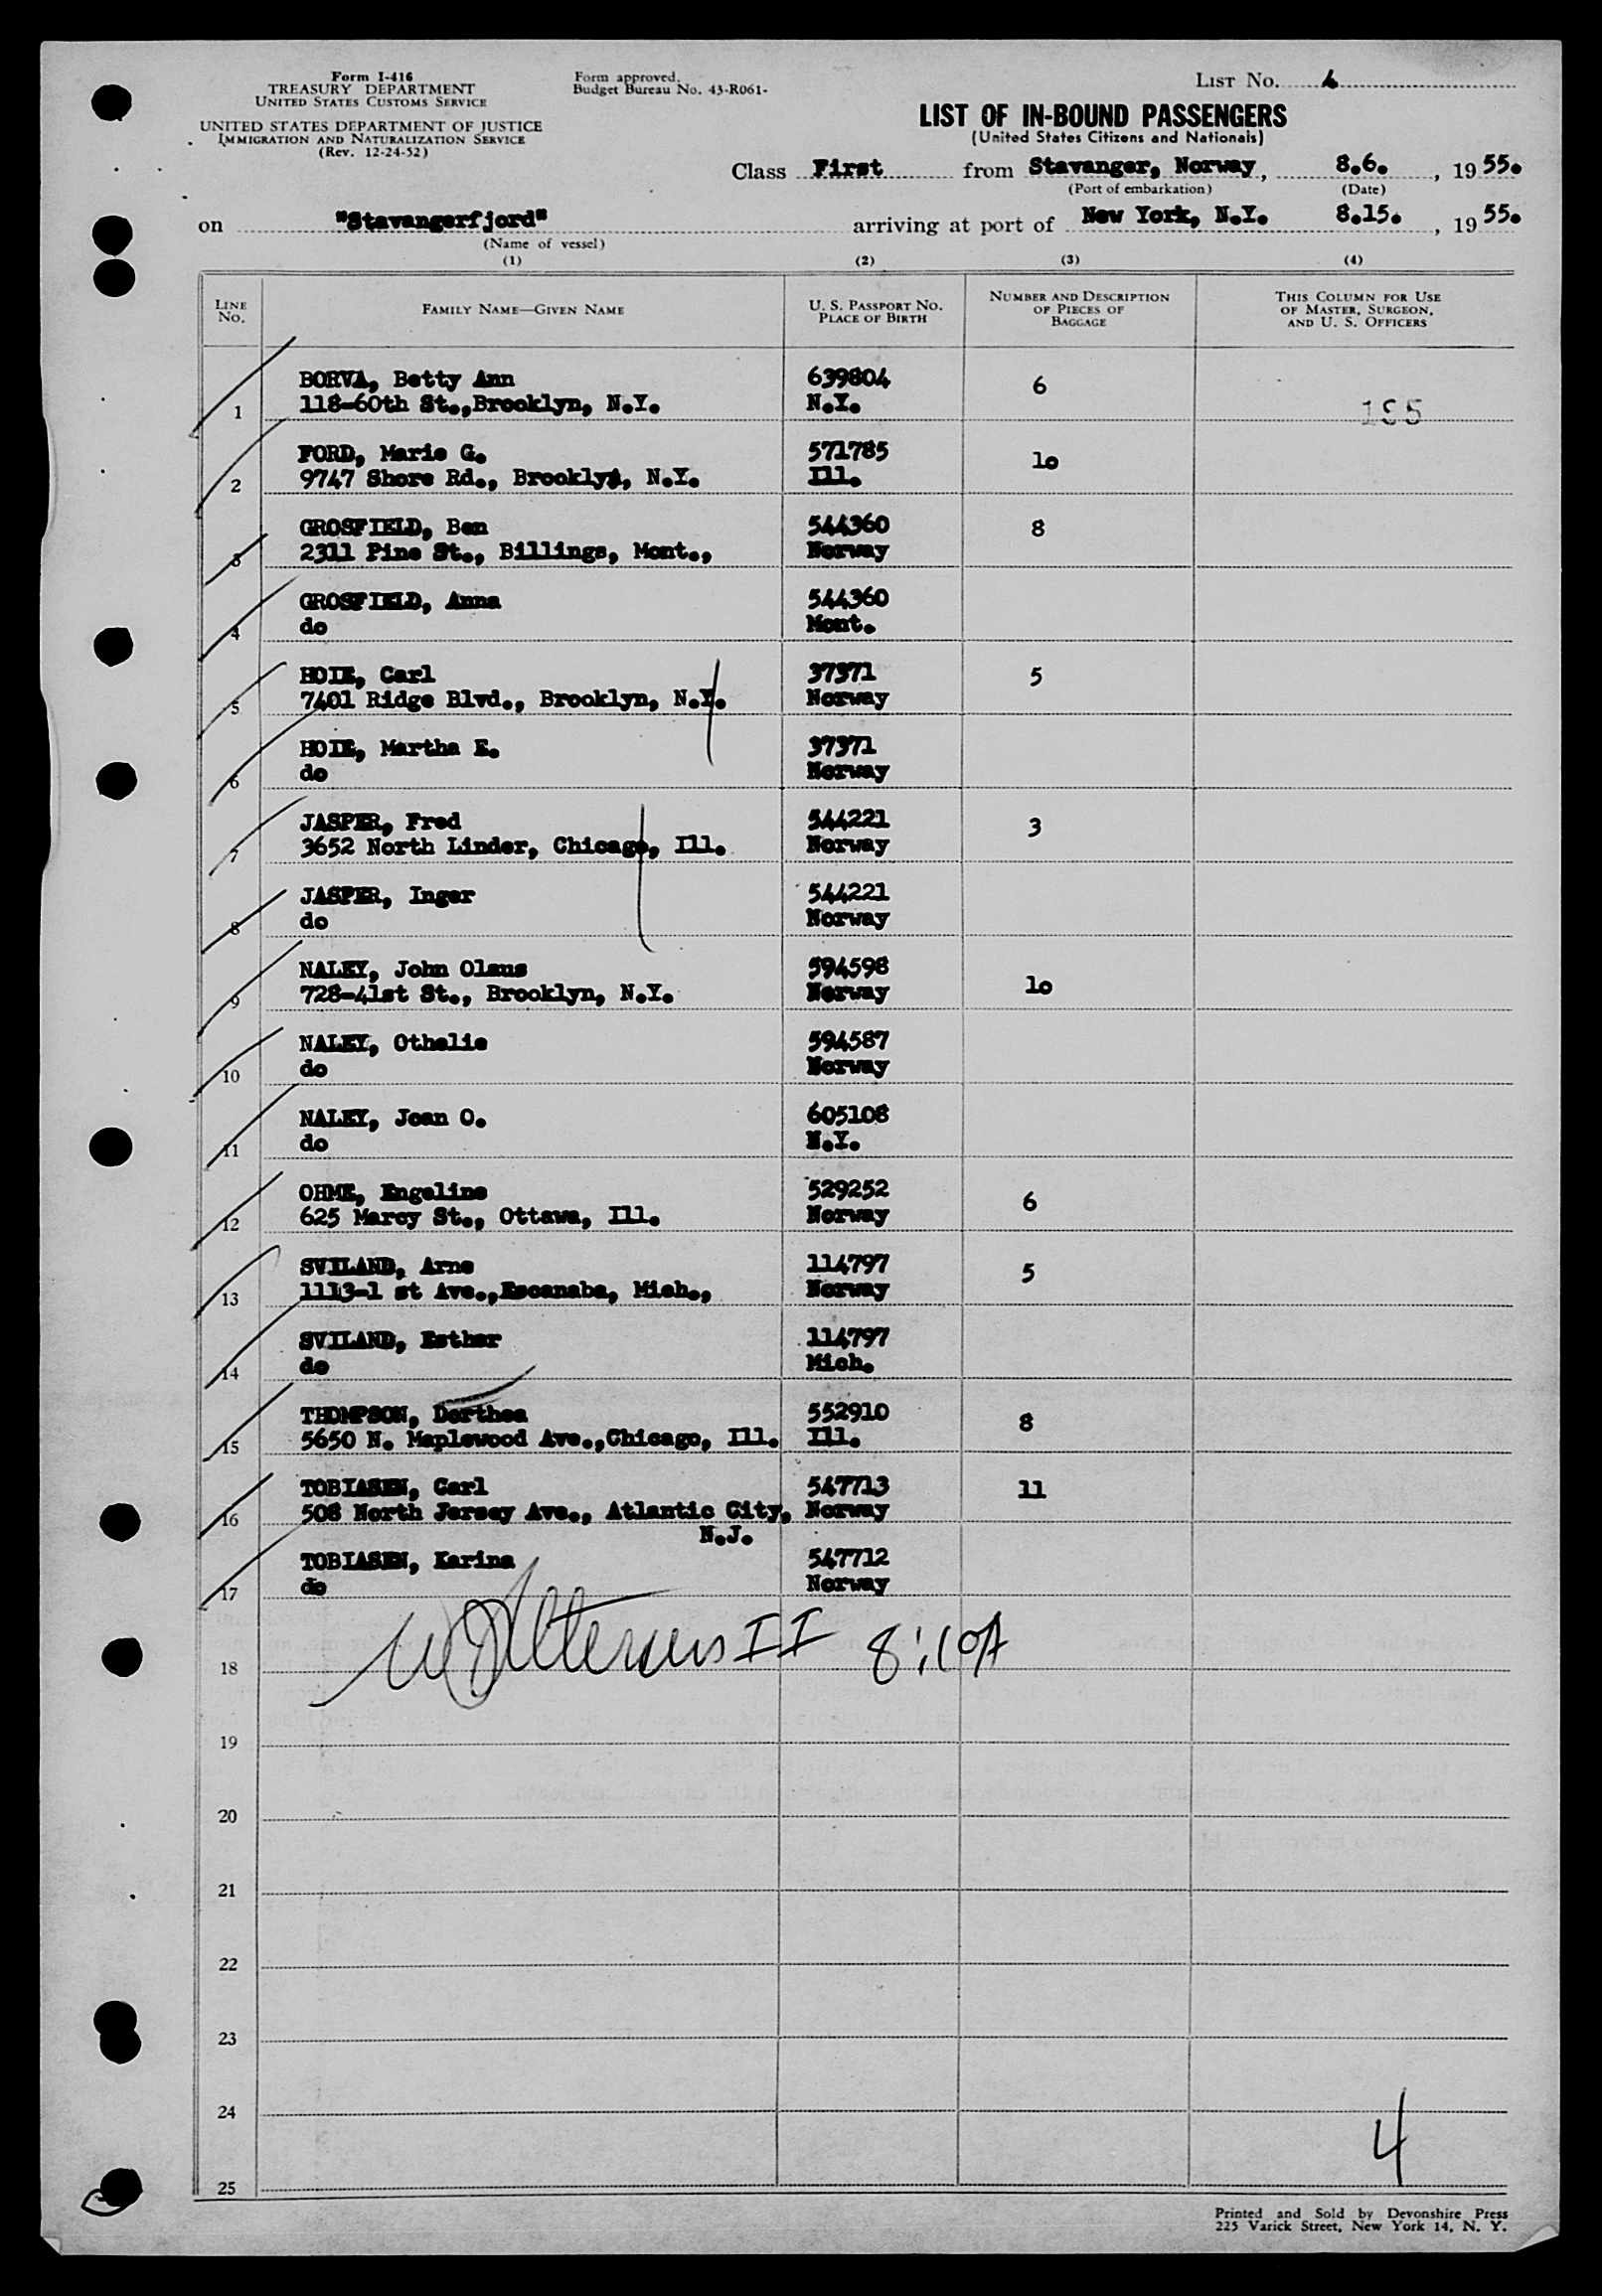 Form I-416
TREASURY DEPARTMENT
UNITED STATES CUSTOMS SERVICE
UNITED STATES DEPARTMENT OF JUSTICE
IMMIGRATION AND NATURALIZATION SERVICE
(Rev. 12-24-52)
Form approved.
Budget Bureau No. 43-R061-
LIST NO. 4
LIST OF IN-BOUND PASSENGERS
(United States Citizens and Nationals)
Class First from Stavanger, Norway, 8.6., 1955.
(Port of embarkation) (Date)
on "Stavangerfjord" arriving at port of New York, N.Y. 8.15., 1955.
(Name of vessel)
(1) (2) (3) (4)
LINE NO. FAMILY NAME—GIVEN NAME U. S. PASSPORT NO. PLACE OF BIRTH NUMBER AND DESCRIPTION OF PIECES OF BAGGAGE THIS COLUMN FOR USE OF MASTER, SURGEON, AND U. S. OFFICERS
BORVA, Betty Ann 639804 6
1 118-60th St.,Brooklyn, N.Y. N.Y. 195
FORD, Marie G. 571785 10
2 9747 Shore Rd., Brooklyn, N.Y. Ill.
GROSFIELD, Ben 544360 8
3 2311 Pine St., Billings, Mont., Norway
GROSFIELD, Anna 544360
4 do Mont.
HOIE, Carl 37371 5
5 7401 Ridge Blvd., Brooklyn, N.Y. Norway
HOIE, Martha E. 37371
6 do Norway
JASPER, Fred 544221 3
7 3652 North Linder, Chicago, Ill. Norway
JASPER, Inger 544221
8 do Norway
NALEY, John Olaus 594598 10
9 728-41st St., Brooklyn, N.Y. Norway
NALEY, Othelie 594587
10 do Norway
NALEY, Jean O. 605108
11 do N.Y.
OHME, Engeline 529252 6
12 625 Marcy St., Ottawa, Ill. Norway
SVILAND, Arne 114797 5
13 1113-1 st Ave.,Escanaba, Mich., Norway
SVILAND, Esther 114797
14 do Mich.
THOMPSON, Dorthea 552910 8
15 5650 N. Maplewood Ave.,Chicago, Ill. Ill.
TOBIASEN, Carl 547713 11
16 508 North Jersey Ave., Atlantic City, Norway
N.J.
TOBIASEN, Karina 547712
17 do Norway
18 II 8:10A
19
20
21
22
23
24
4
25
Printed and Sold by Devonshire Press
225 Varick Street, New York 14, N. Y.